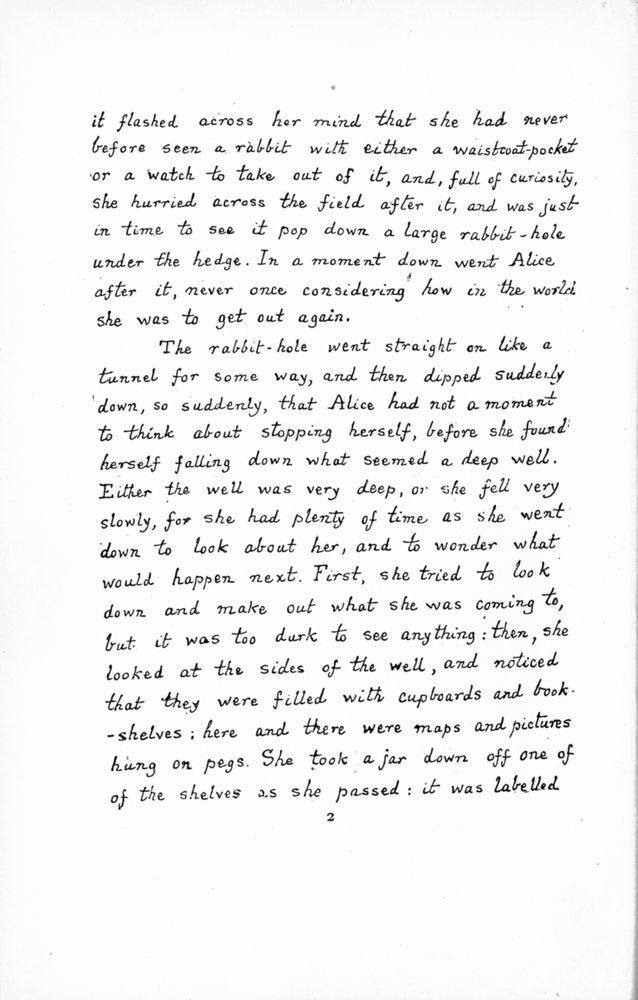 it flashed across her mind that she had never
before seen a rabbit with either a waistcoat-pocket
or a watch to take out of it, and, full of curiosity,
she hurried across the field after it, and was just
in time to see it pop down a large rabbit-hole
under the hedge. In a moment down went Alice
after it, never once considering how in the world
she was to get out again.
The rabbit-hole went straight on like a
tunnel for some way, and then dipped suddenly
down, so suddenly, that Alice had not a moment
to think about stopping herself, before she found
herself falling down what seemed a deep well.
Either the well was very deep, or she fell very
slowly, for she had plenty of time as she went
down to look about her, and to wonder what
would happen next. First, she tried to look
down and make out what she was coming to,
but it was too dark to see anything: then, she
looked at the sides of the well, and noticed
that they were filled with cupboards and book-
-shelves; here and there were maps and pictures
hung on pegs. She took a jar down off one of
of the shelves as she passed: it was labelled
2